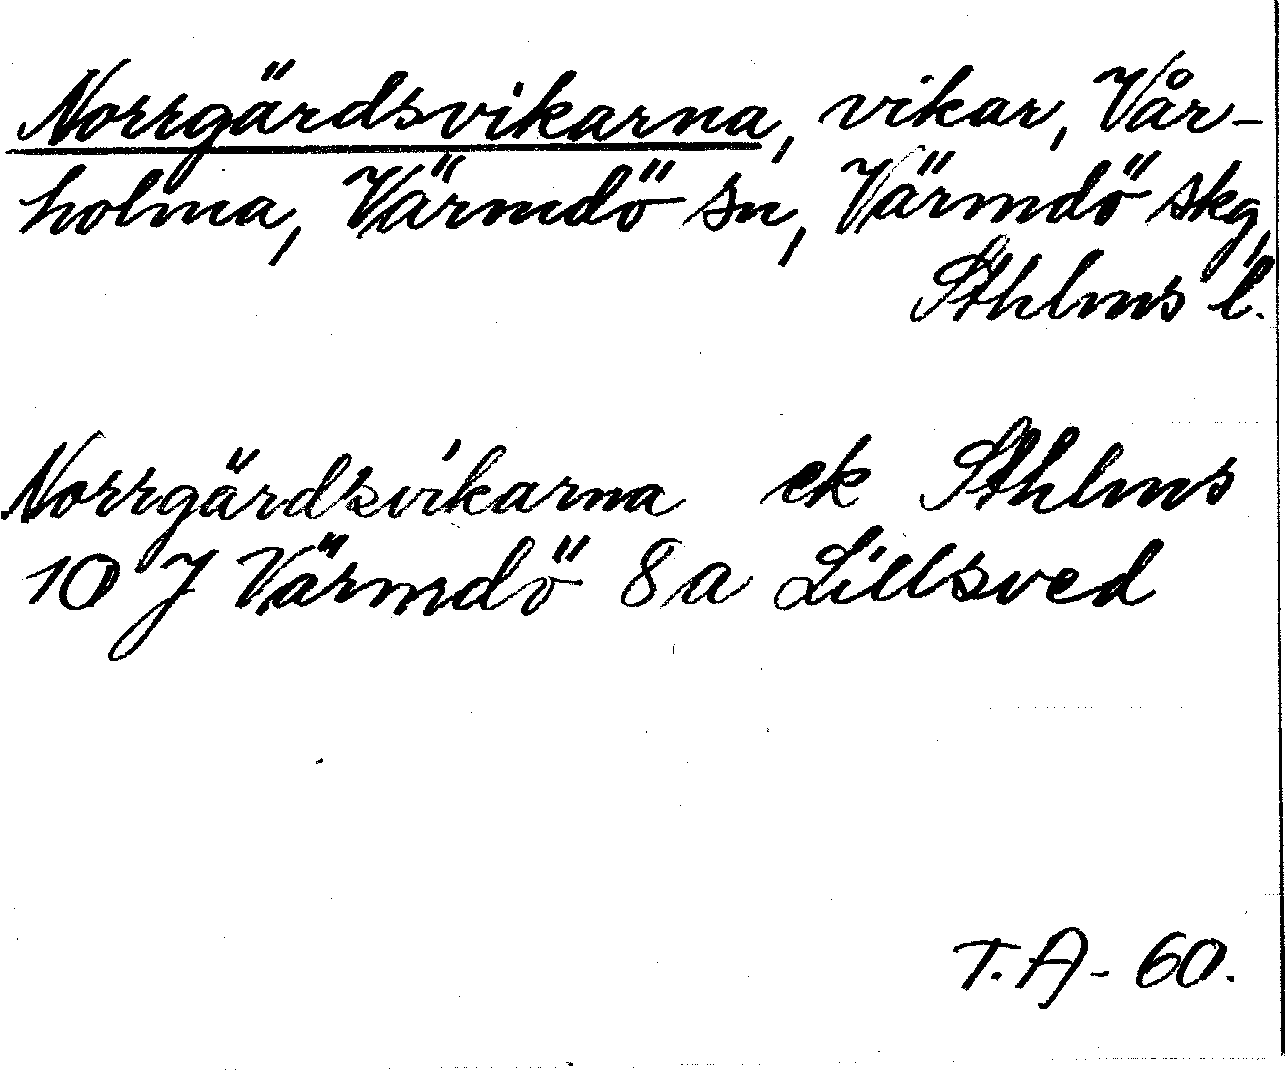 Norrgärdsvikarna, vikar, Vår-
holma, Värmdö sn, Värmdö skg,
Sthlms l.
Norrgärdsvikarna ek Sthlms
10 J Värmdö 8a Lillsved
T.A-60.